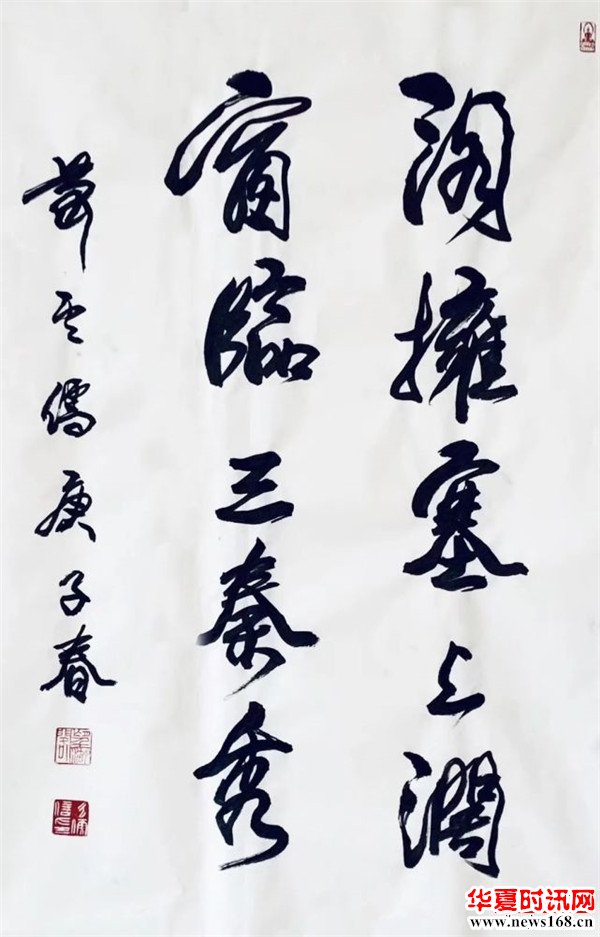 閣擁塞上濶
窗臨三秦秀
庚子春
华夏时讯网
www.news168.cn